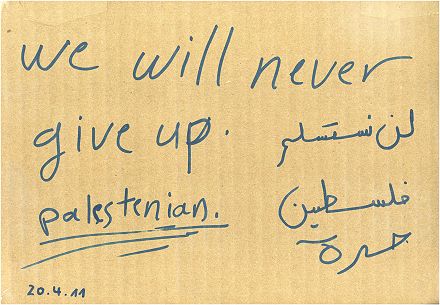 we will never
give up.
لن نستسلم
palestenian.
فلسطين
حرة
20.4.11